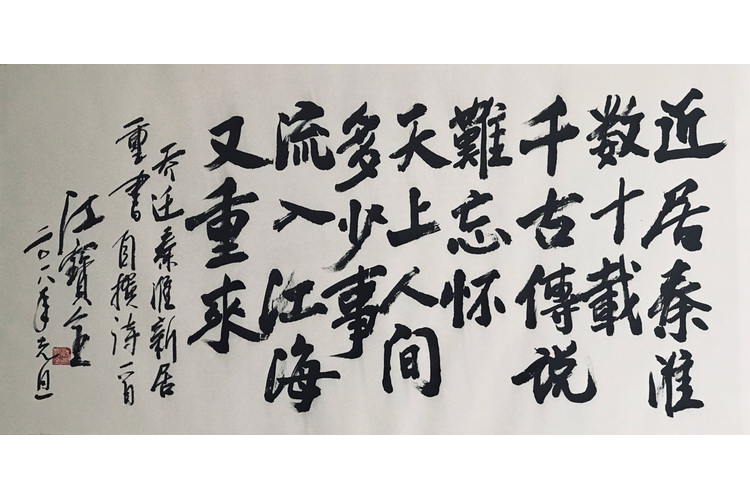 近居秦淮
数十载
千古傳说
難忘怀
天上人间
多少事
流入江海
又重來
乔迁秦淮新居
重書自撰诗一首
江寶全
二〇一八年元旦